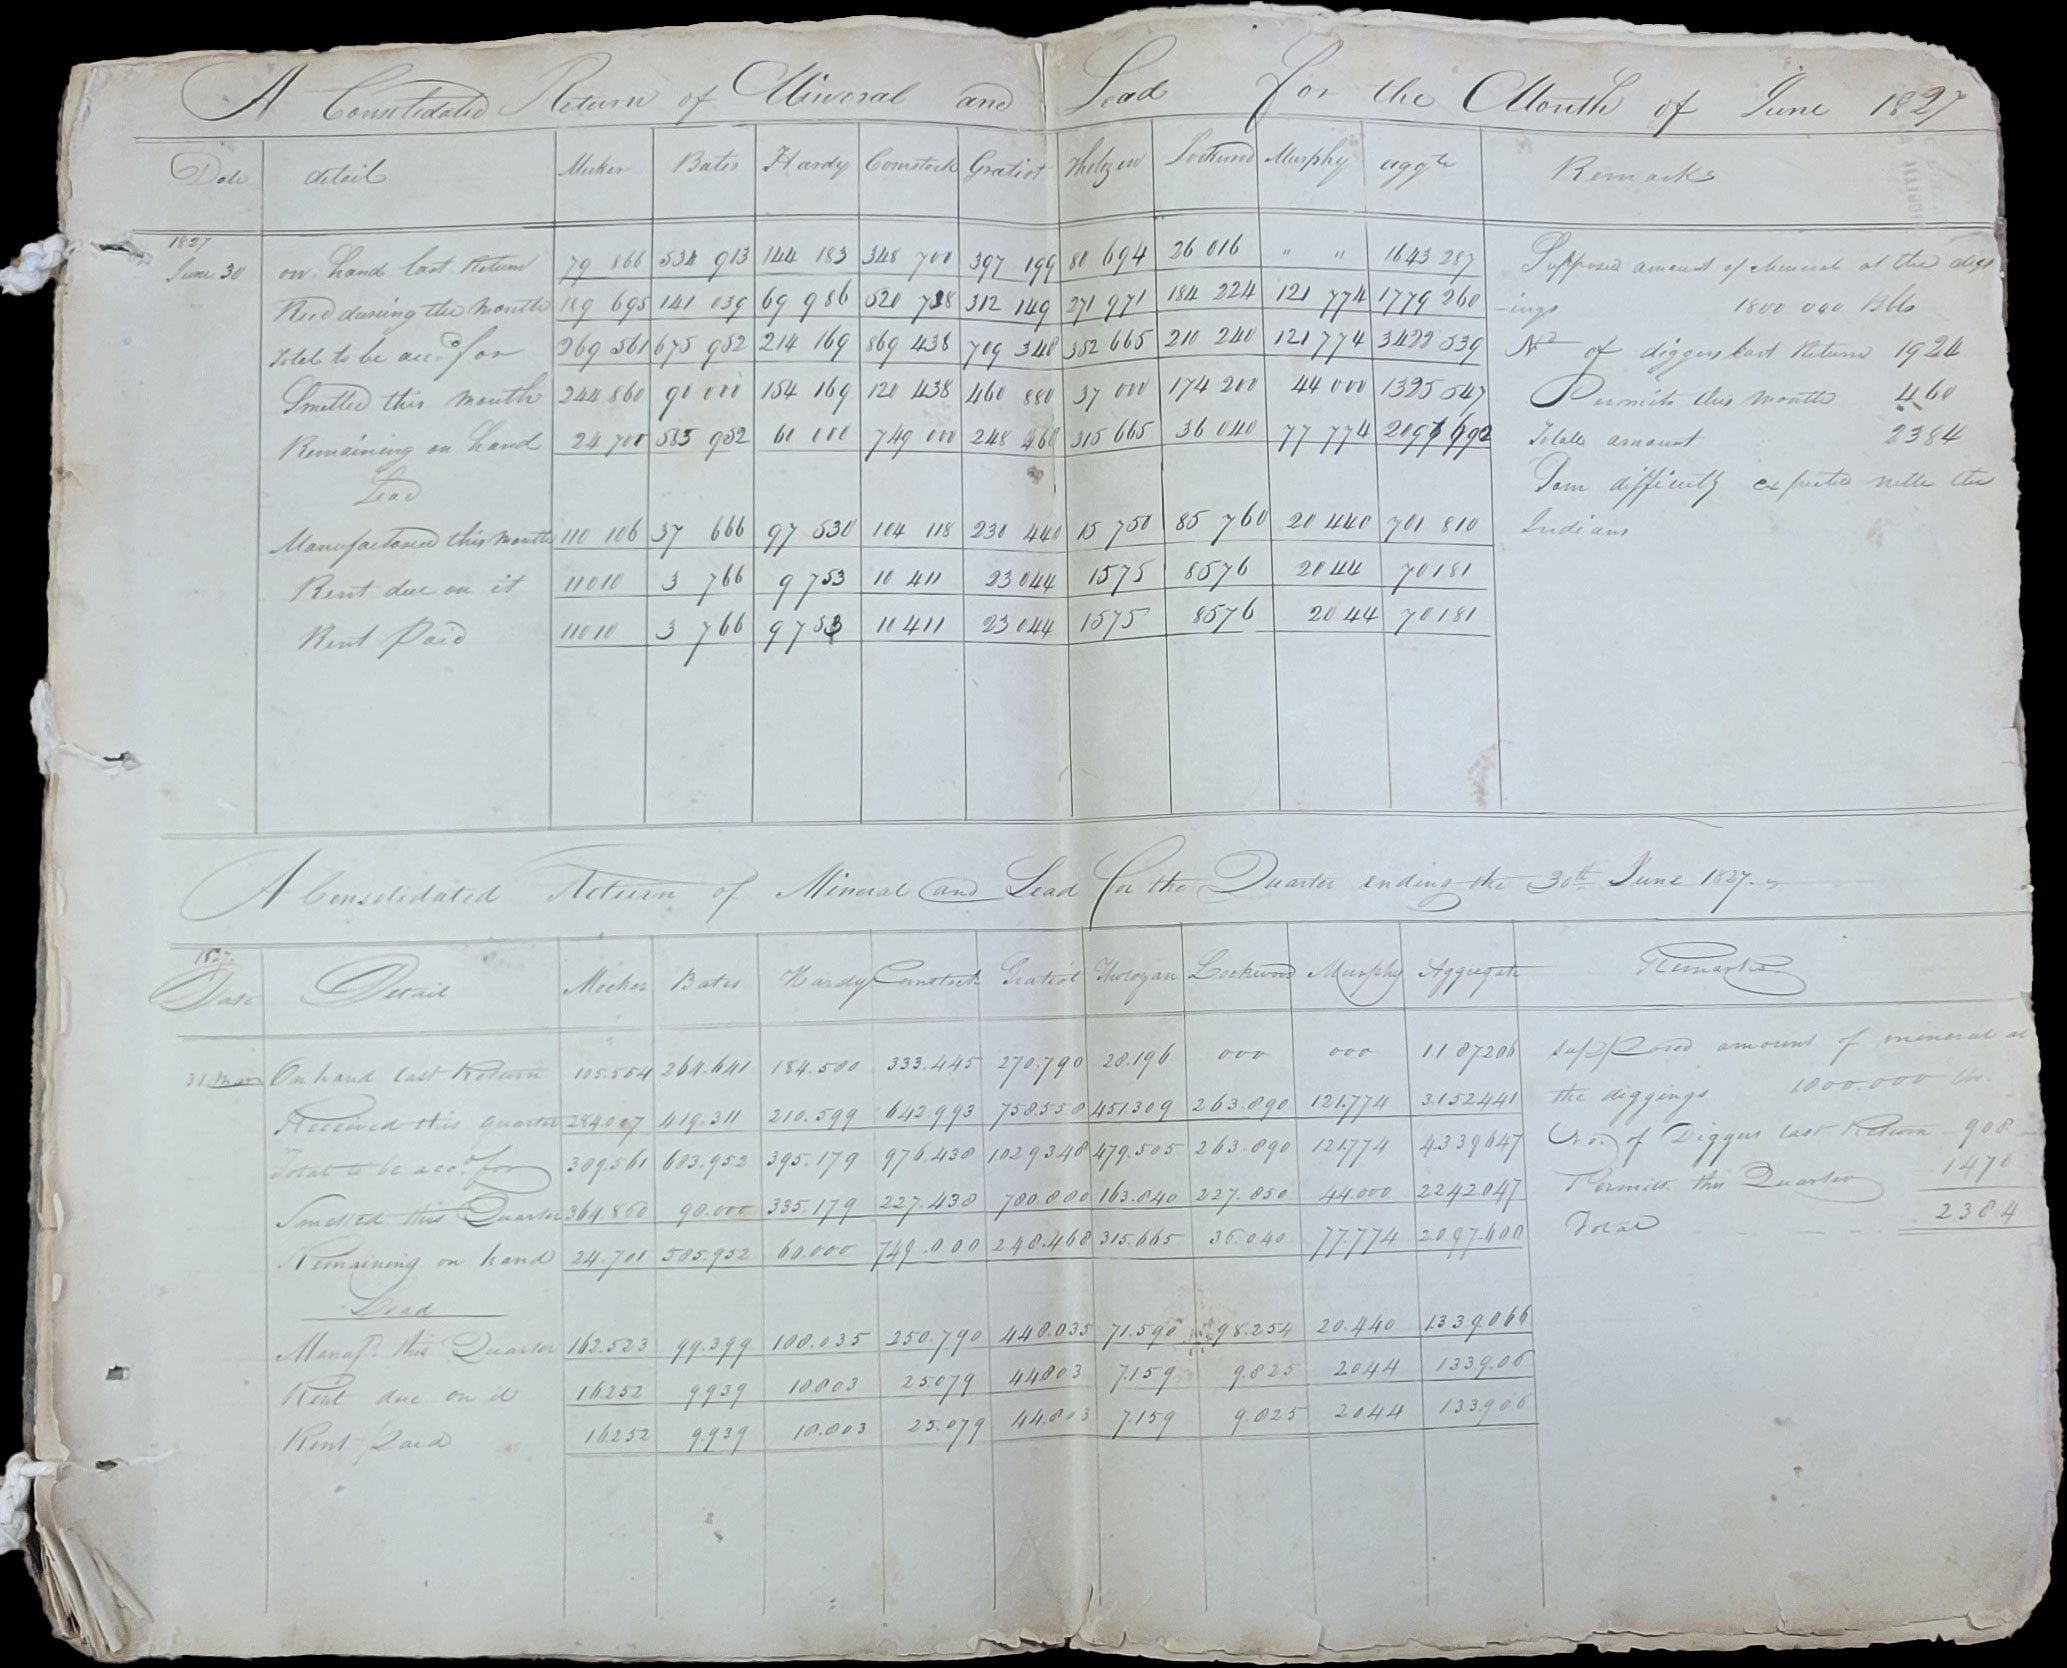 A Consolidated Return of Mineral and Lead For the Month of June 1827
Date detail Meeker Bates Hardy Comstock Gratiot Tholozan Lockwood Murphy aggte Remarks
1827
June 30 on hand last Return 79 866 534 913 144 183 348 700 397 199 80 694 26 016 " " 1643 287 Supposed amount of Mineral at the digg
Recd dureing the month 189 695 141 039 69 986 520 738 312 149 271 971 184 224 121 774 1779 260 -ings 1800 000 lbs
Total to be accd for 269 561 675 952 214 169 869 438 709 348 352 665 210 240 121 774 3422 539 No of diggers last Return 1924
Smelted this month 244 860 90 000 154 169 120 438 460 880 37 000 174 200 44 000 1325 547 Permits this month 460
Remaining on hand 24 700 585 952 60 000 749 000 248 468 315 665 36 040 77 774 2097 692 Total amount 2384
Lead Som difficulty expected with the
Manufactored this month 110 106 37 666 97 530 104 118 230 440 15 750 85 760 20 440 701 810 Indians
Rent due on it 11010 3 766 9 753 10 411 23 044 1575 8576 2044 70181
Rent Paid 11010 3 766 9 753 10 411 23 044 1575 8576 2044 70181
A Consolidated Return of Mineral and Lead for the Quarter ending the 30th June 1827.
1827.
Date Detail Meeker Bates Hardy Comstock Gratiot Tholozan Lockwood Murphy Aggregate Remarks
31 Mar On hand last Return 105.554 264.641 184.580 333.445 270.790 28.196 000 000 1.187206 supposed amount of mineral at
Received this quarter 284.007 419.311 210.599 642.993 758.558 451309 263.890 121.774 3.152441 the diggings 1800.000 lbs.
Total to be acco. for 389.561 683.952 395.179 976.438 1.029348 479.505 263.890 121.774 4.339647 No. of Diggers last Return 908
Smelted this Quarter 364.860 98.000 335.179 227.438 780.880 163.840 227.850 44.000 2242047 Permits this Quarter 1476
Remaining on hand 24.701 585.952 60.000 749.000 248.468 315.665 36.040 77.774 2.097.600 Total 2384
Lead
Manufd. this Quarter 162.523 99.399 188.035 250.790 448.035 71.590 98.254 20.440 1.339.066
Rent due on it 16252 9939 18803 25079 44803 7.159 9.825 2044 133.906
Rent Paid 16252 9.939 18.803 25.079 44.803 7.159 9.825 2044 133.906